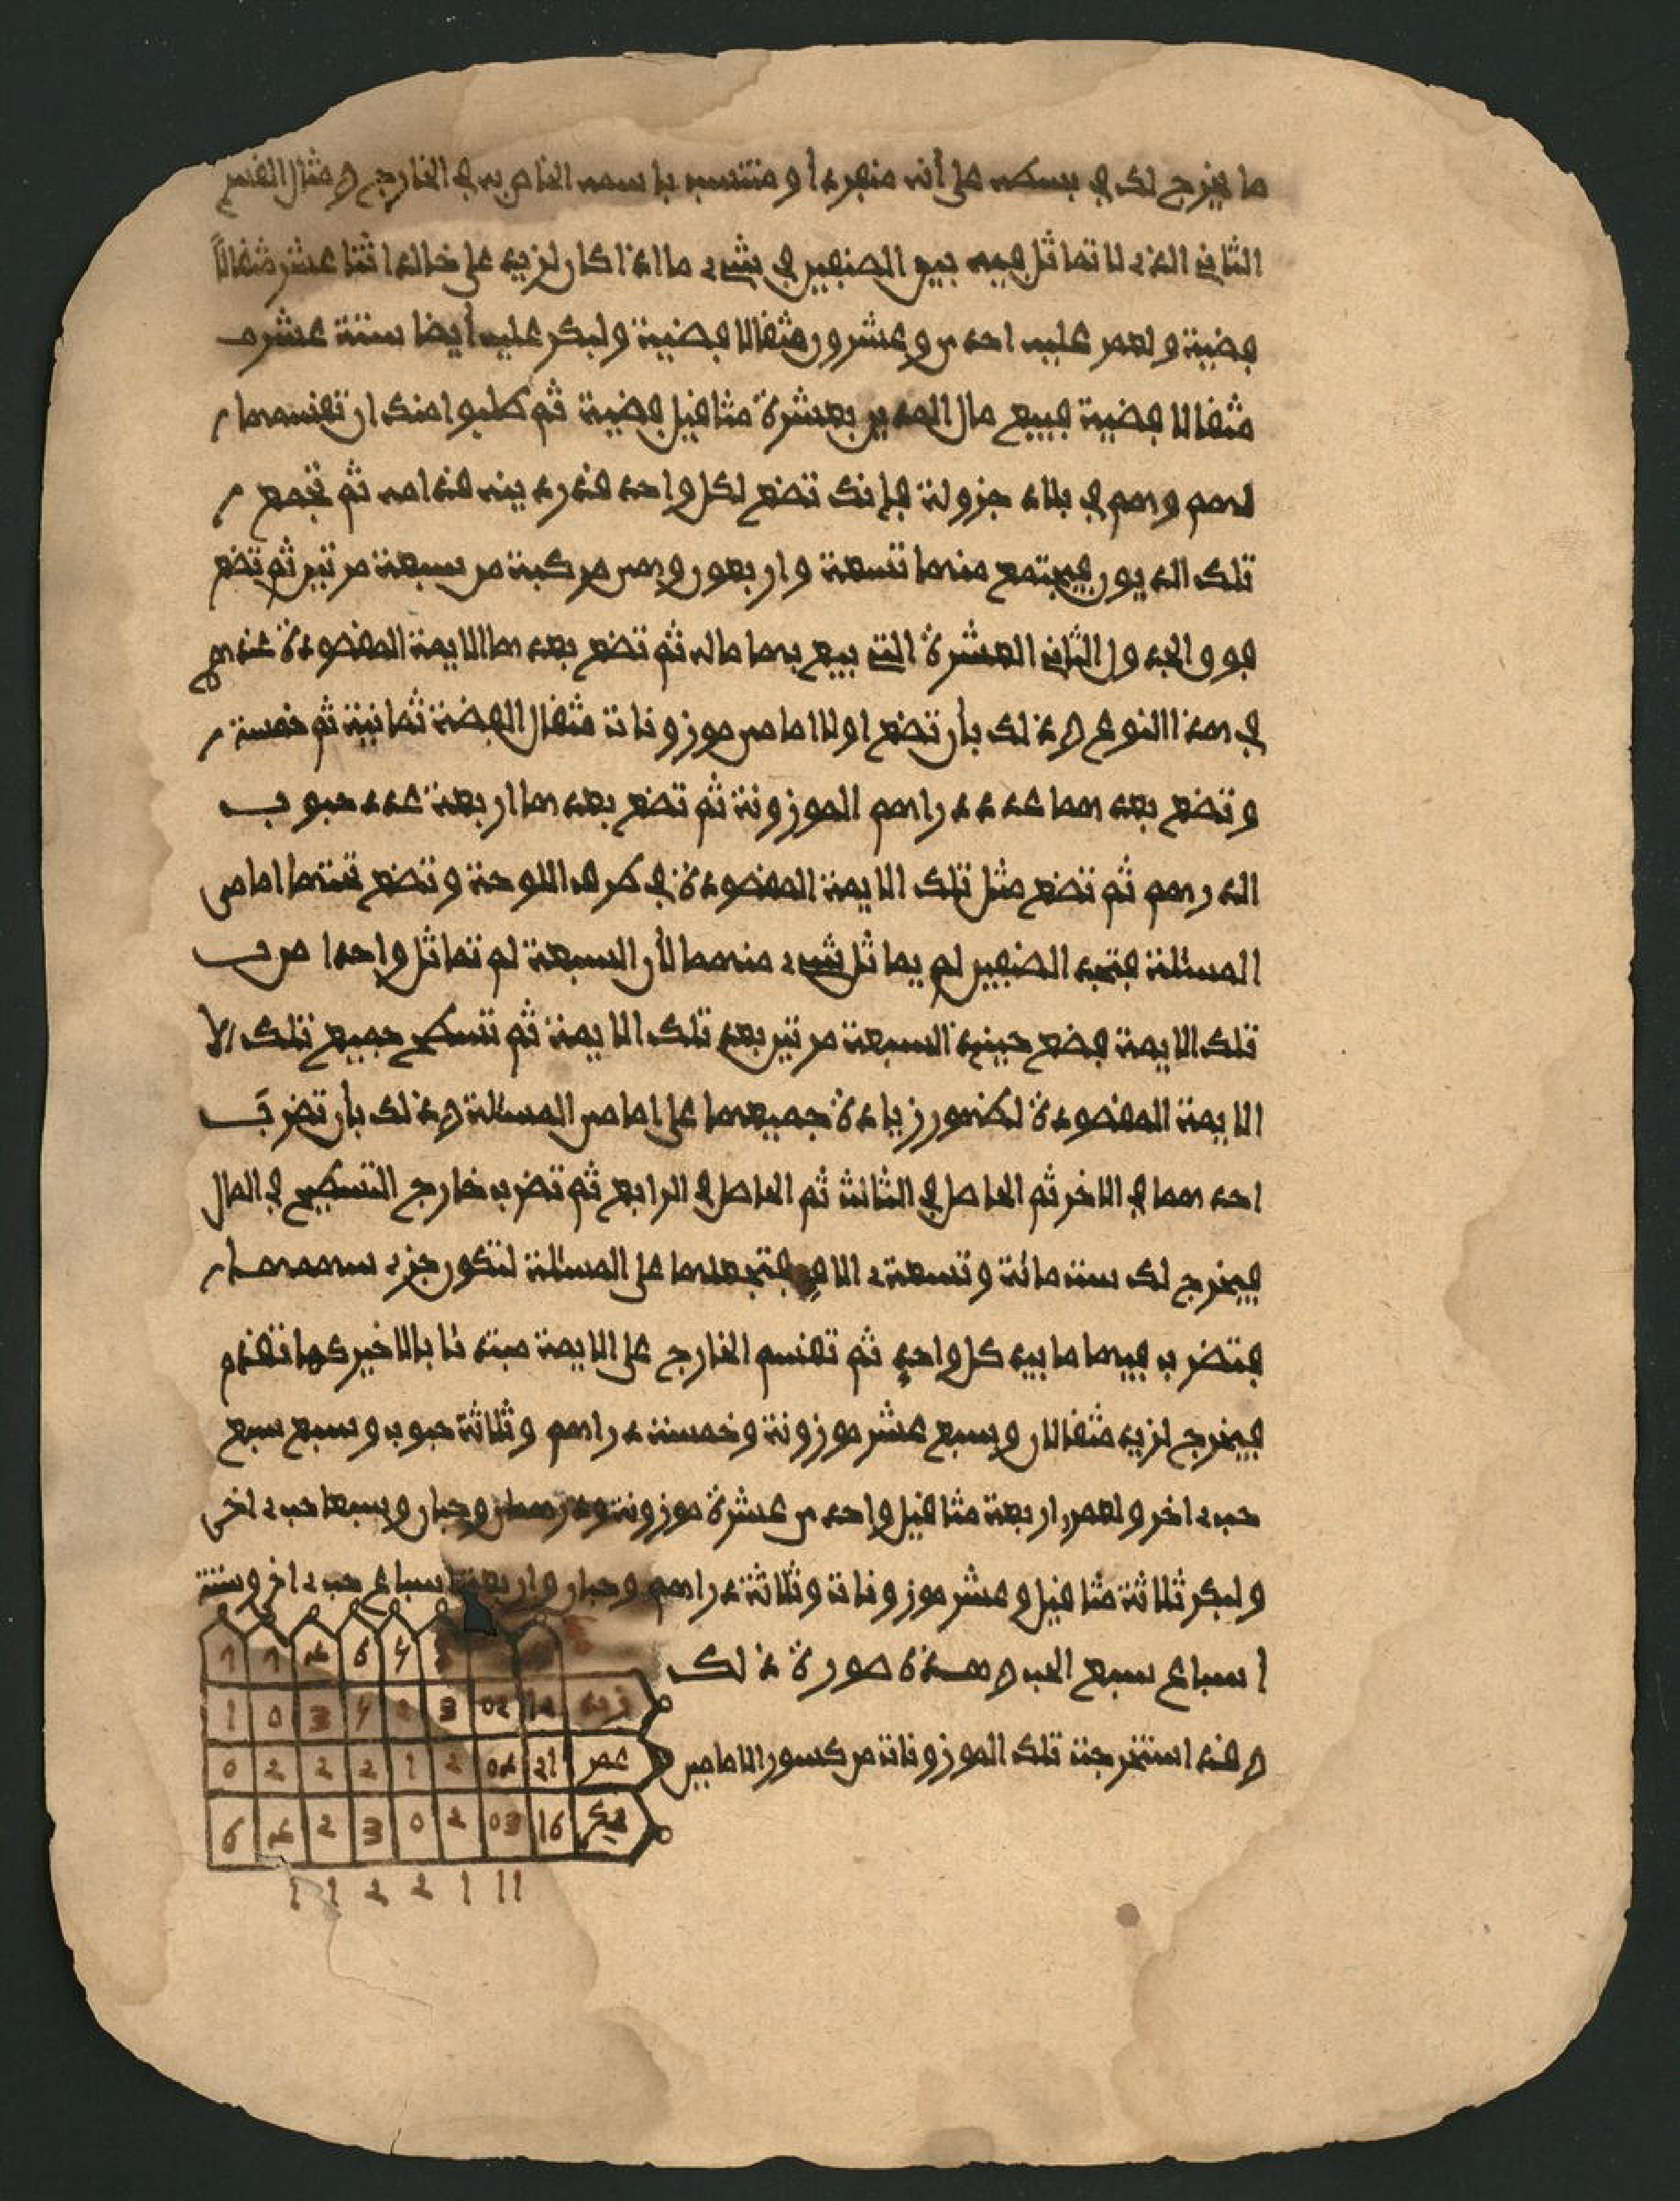 ما يخرج لك في بسطه على أنه منفرد أو منتسب باسمه الخاص به في الخارج ومثال القسم
الثاني الذي لا تماثل فيه بين الصنفين في شيء ما اذا كان لزيد على خالد اثنا عشر مثقالاً
فضية ولعمر عليه احدى وعشرون مثقالا فضية ولبكر عليه أيضا ستة عشر
مثقالا فضية فبيع مال المدين بعشرة مثاقيل فضية ثم طلبوا منك ان تقسمها
لهم وهم في بلاد جزولة فإنك تضع لكل واحد قدر دينه قدامه ثم تجمع
تلك الديون فيجتمع منها تسعة واربعون وهي مركبة من سبعة مرتين ثم تضع
فوق الجدول الثاني العشرة التي بيع بها ماله ثم تضع بعدها الايمة المقصودة عندهم
في هذا النوع وذلك بأن تضع اولا امامي موزونات مثقال الفضة ثمانية ثم خمسة
وتضع بعدهما عدد دراهم الموزونة ثم تضع بعدها اربعة عدد حبوب
الدرهم ثم تضع مثل تلك الايمة المقصودة في طرف اللوحة وتضع تحتها امامي
المسئلة فتجد الصنفين لم يماثل شيء منهما لأن السبعة لم تماثل واحدا من
تلك الايمة فضع حينئذ السبعة مرتين بعد تلك الايمة ثم تسطح جميع تلك الا
الايمة المقصودة لظهور زيادة جميعها على امامي المسئلة وذلك بأن تضرب
احدهما في الاخر ثم الحاصل في الثالث ثم الحاصل في الرابع ثم تضرب خارج التسطيح في المال
فيخرج لك ستة مائة وتسعة الاف فتجعلها على المسئلة لتكون جزء سهمها
فتضرب فيها ما بيد كل واحد ثم تقسم الخارج على الايمة مبتدئا بالاخير كما تقدم
فيخرج لزيد مثقالان وسبع عشر موزونة وخمسة دراهم وثلاثة حبوب وسبع سبع
حبء اخر ولعمر اربعة مثاقيل واحدى عشرة موزونة ودرهمان وحبان وسبعا حبء اخر
ولبكر ثلاثة مثاقيل وعشر موزونات وثلاثة دراهم وحبان واربعة اسباع حبء اخر وستة
اسباع سبع الحب وهذه صورة ذلك
وقد استخرجت تلك الموزونات من كسور الامامين
7 7 4 6 5
زيد 12 02 3 2 5 3 0 1
عمر 21 04 2 1 2 2 2 0
بكر 16 03 2 0 3 2 4 6
11 1 2 2 1 1